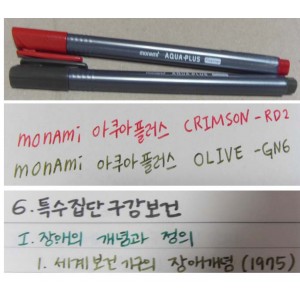 monami AQUA-PLUS
monami AQUA-PLUS
monami 아쿠아플러스 CRIMSON-RD2
monami 아쿠아플러스 OLIVE-GN6
6. 특수집단 구강보건
I. 장애의 개념과 정의
1. 세계보건기구의 장애개념 (1975)